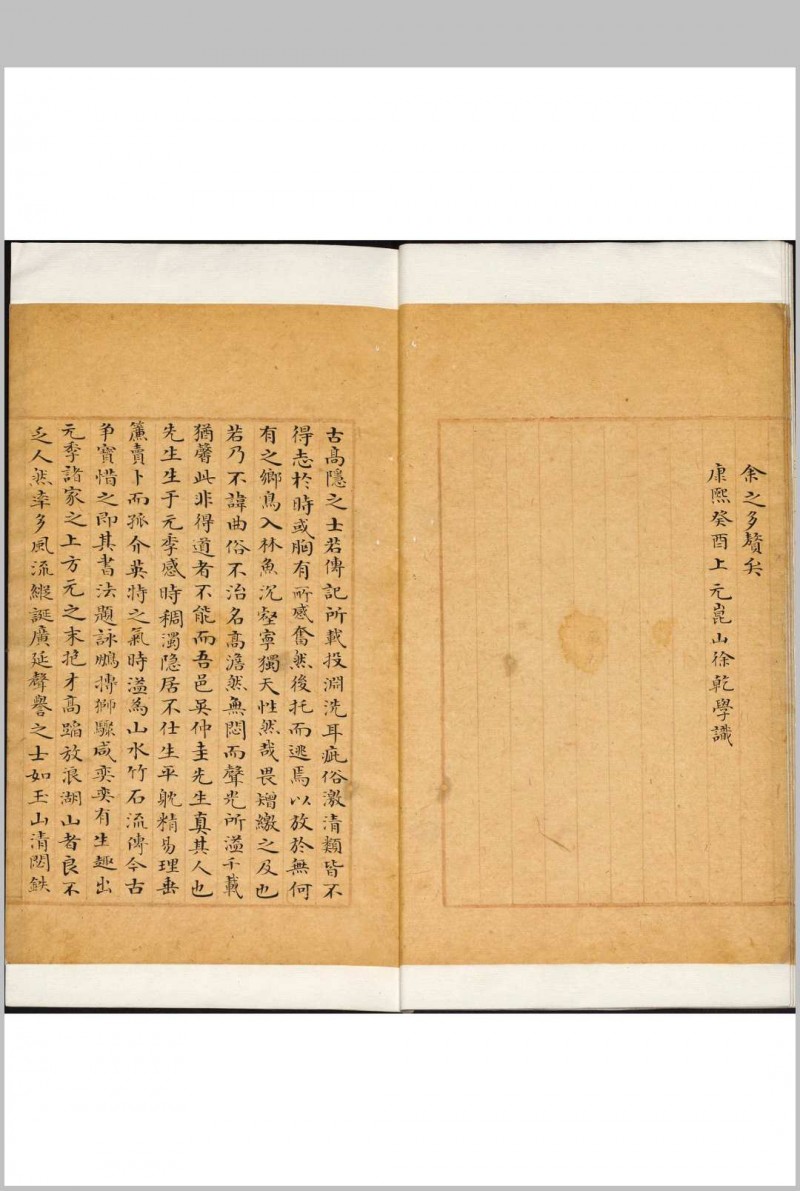 余之多贅矣
康熙癸酉上元崑山徐乾學識
古高隱之士若傳記所載投淵洗耳疵俗激清類皆不
得志於時或胸有所感奮然後托而逃焉以放於無何
有之鄉鳥入林魚沉壑寧獨天性然哉畏矰繳之及也
若乃不諱曲俗不治名高澹然無悶而聲光所溢千載
猶馨此非得道者不能而吾邑吳仲圭先生真其人也
先生生于元季感時稠濁隐居不仕生平躭精易理垂
簾賣卜而孤介英特之氣時溢為山水竹石流傳今古
争寶惜之即其書法題詠鵬摶獅驟咸奕奕有生趣出
元季諸家之上方元之末抱才高蹈放浪湖山者良不
乏人然率多風流縱誕廣延聲譽之士如玉山清閟鉄